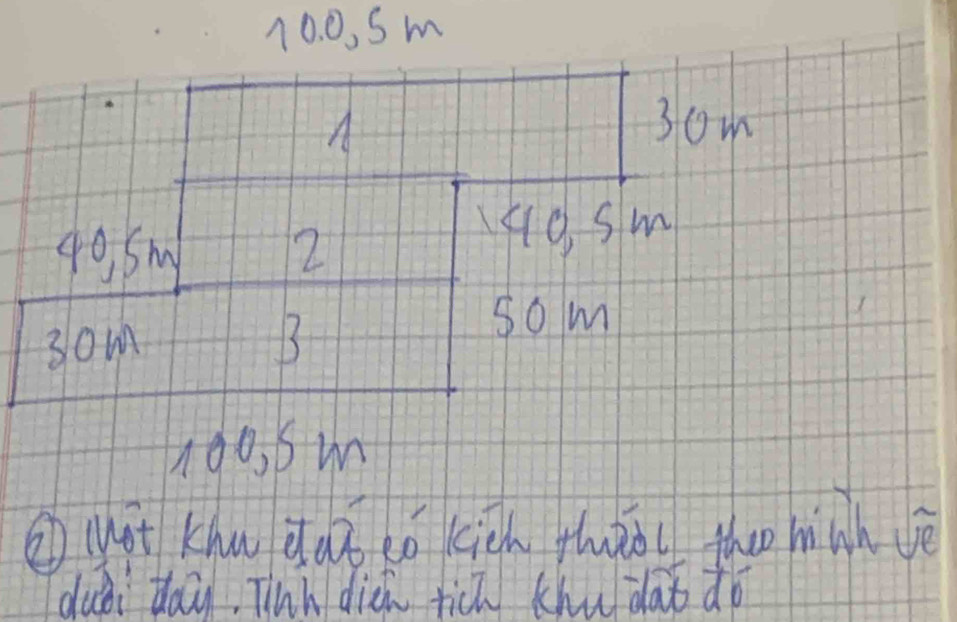 100,5m
1
30m
40,5m
2
40,5m
30m
3
50m
100,5m
② Một khu đất có kích thước theo hình vẽ
dưới đây. Tính diện tích khu đất đó